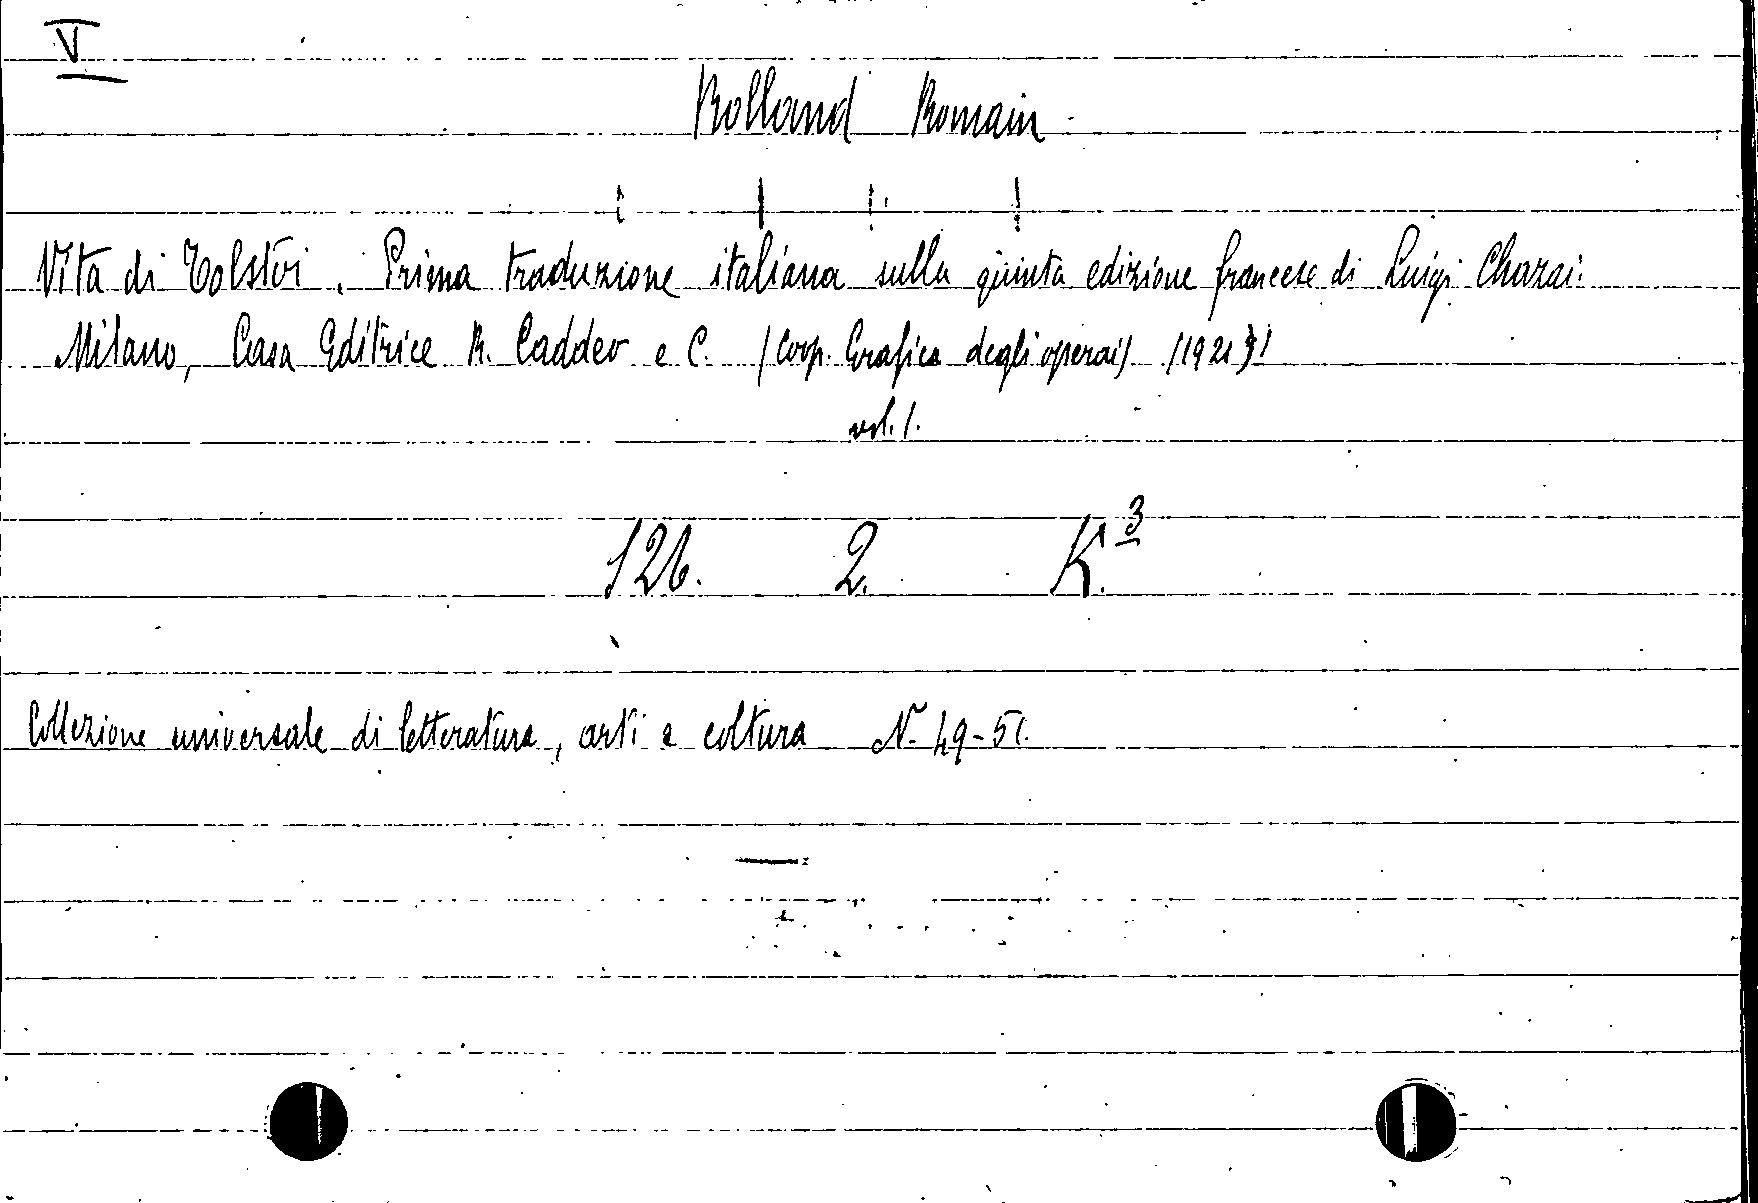 V
Rolland Romain
Vita di Tolstoi. Prima traduzione italiana sulla quinta edizione francese di Luigi Charai:
Milano, Casa Editrice R. Caddeo e C. (Coop. Grafica degli operai) (1921)
vol. 1.
126. 2. K.3
Collezione universale di letteratura, arti e coltura N. 49-51.